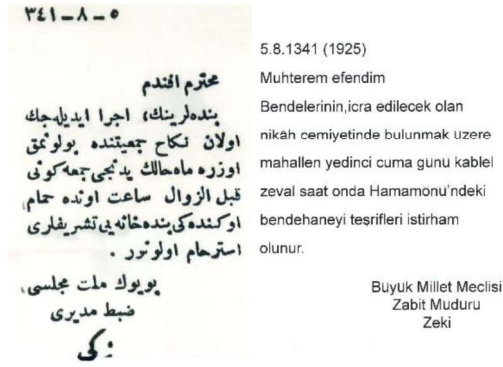 ٥-٨-٣٤١
محترم افندم
بنده‌لرينك، اجرا ايديله‌جك
اولان نكاح جمعيتنده بولونمق
اوزره ماه حالك يدنجى جمعه كونى
قبل الزوال ساعت اونده حمام
اوكنده‌كى بنده‌خانه‌يى تشريفلرى
استرحام اولونور .
بويوك ملت مجلسى
ضبط مديرى
زكى
5.8.1341 (1925)
Muhterem efendim
Bendelerinin,icra edilecek olan
nikâh cemiyetinde bulunmak üzere
mahallen yedinci cuma günü kablel
zeval saat onda Hamamonu'ndeki
bendehaneyi teşrifleri istirham
olunur.
Büyük Millet Meclisi
Zabit Muduru
Zeki